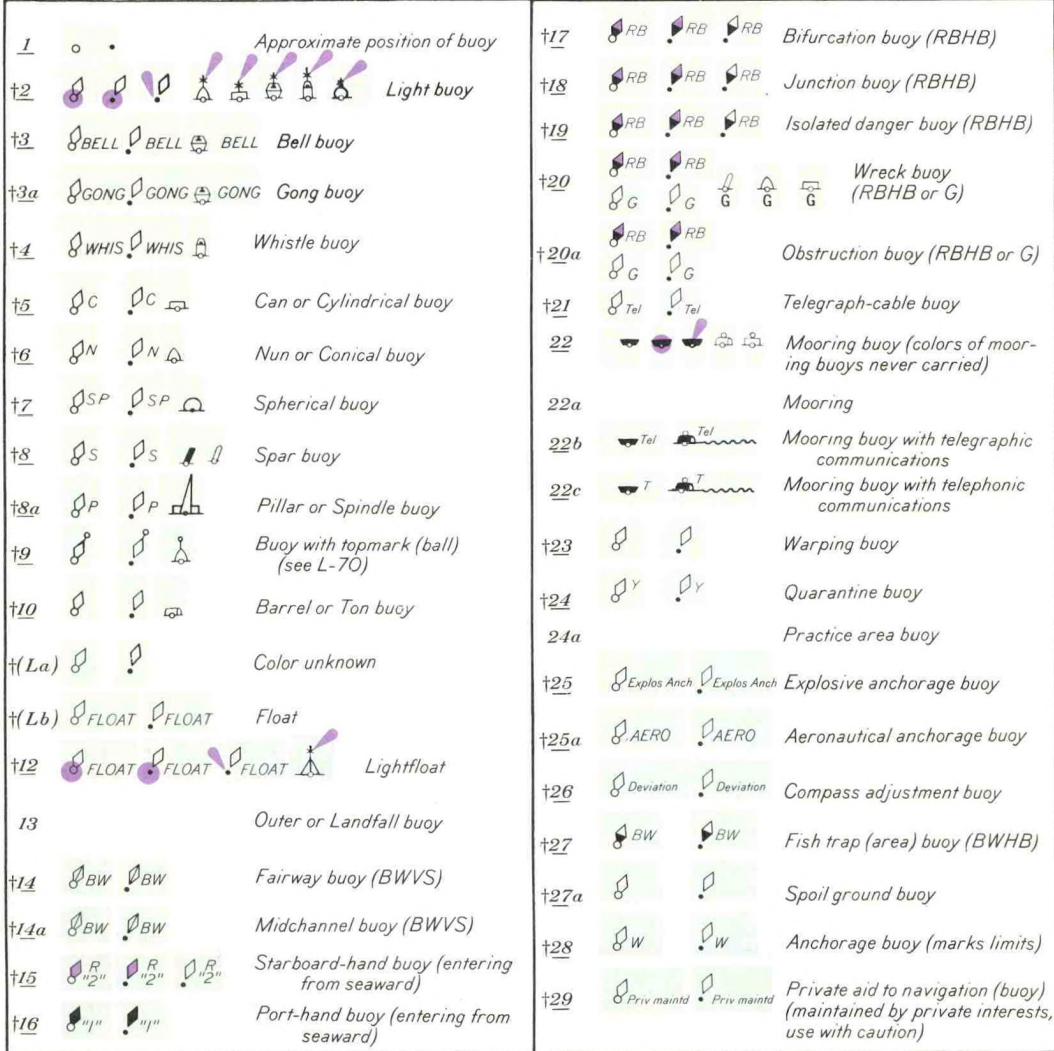 1 Approximate position of buoy
†2 Light buoy
†3 BELL BELL BELL Bell buoy
†3a GONG GONG GONG Gong buoy
†4 WHIS WHIS Whistle buoy
†5 C C Can or Cylindrical buoy
†6 N N Nun or Conical buoy
†7 SP SP Spherical buoy
†8 S S Spar buoy
†8a P P Pillar or Spindle buoy
†9 Buoy with topmark (ball)
(see L-70)
†10 Barrel or Ton buoy
†(La) Color unknown
†(Lb) FLOAT FLOAT Float
†12 FLOAT FLOAT FLOAT Lightfloat
13 Outer or Landfall buoy
†14 BW BW Fairway buoy (BWVS)
†14a BW BW Midchannel buoy (BWVS)
†15 R "2" R "2" R "2" Starboard-hand buoy (entering
from seaward)
†16 "1" "1" Port-hand buoy (entering from
seaward)
†17 RB RB RB Bifurcation buoy (RBHB)
†18 RB RB RB Junction buoy (RBHB)
†19 RB RB RB Isolated danger buoy (RBHB)
†20 RB RB Wreck buoy
G G G G G (RBHB or G)
†20a RB RB Obstruction buoy (RBHB or G)
G G
†21 Tel Tel Telegraph-cable buoy
22 Mooring buoy (colors of moor-
ing buoys never carried)
22a Mooring
22b Tel Tel Mooring buoy with telegraphic
communications
22c T T Mooring buoy with telephonic
communications
†23 Warping buoy
†24 Y Y Quarantine buoy
24a Practice area buoy
†25 Explos Anch Explos Anch Explosive anchorage buoy
†25a AERO AERO Aeronautical anchorage buoy
†26 Deviation Deviation Compass adjustment buoy
†27 BW BW Fish trap (area) buoy (BWHB)
†27a Spoil ground buoy
†28 W W Anchorage buoy (marks limits)
†29 Priv maintd Priv maintd Private aid to navigation (buoy)
(maintained by private interests,
use with caution)